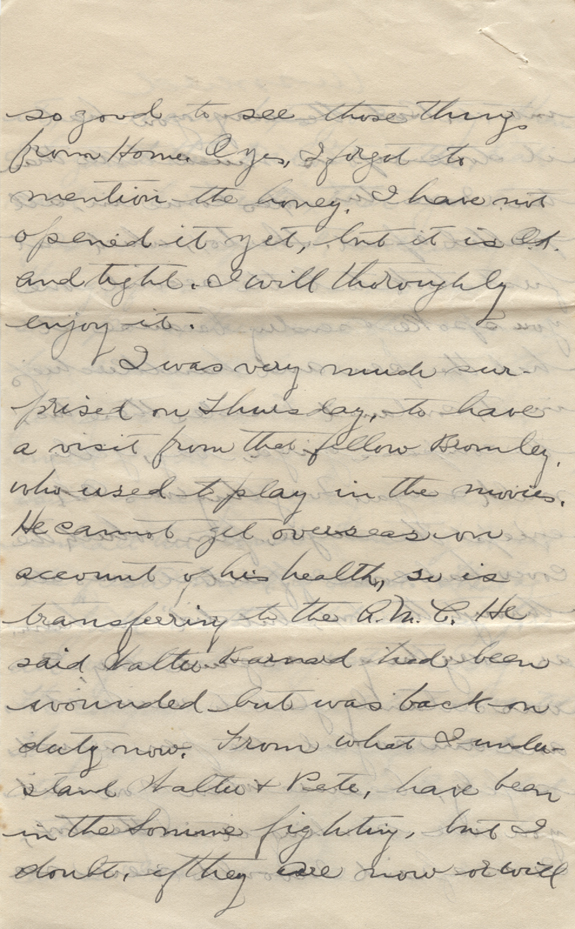 so good to see those things
from Home. O yes, I forgot to
mention the honey. I have not
opened it yet, but it is O.K.
and tight. I will thoroughly
enjoy it.
I was very much sur-
prised on Thursday, to have
a visit from that fellow Bromley,
who used to play in the movies.
He cannot get overseas on
account of his health, so is
transferring to the A.M.C. He
said Walter Barnard had been
wounded but was back on
duty now. From what I under-
stand Walter & Pete, have been
in the Somme fighting, but I
doubt, if they are now or will